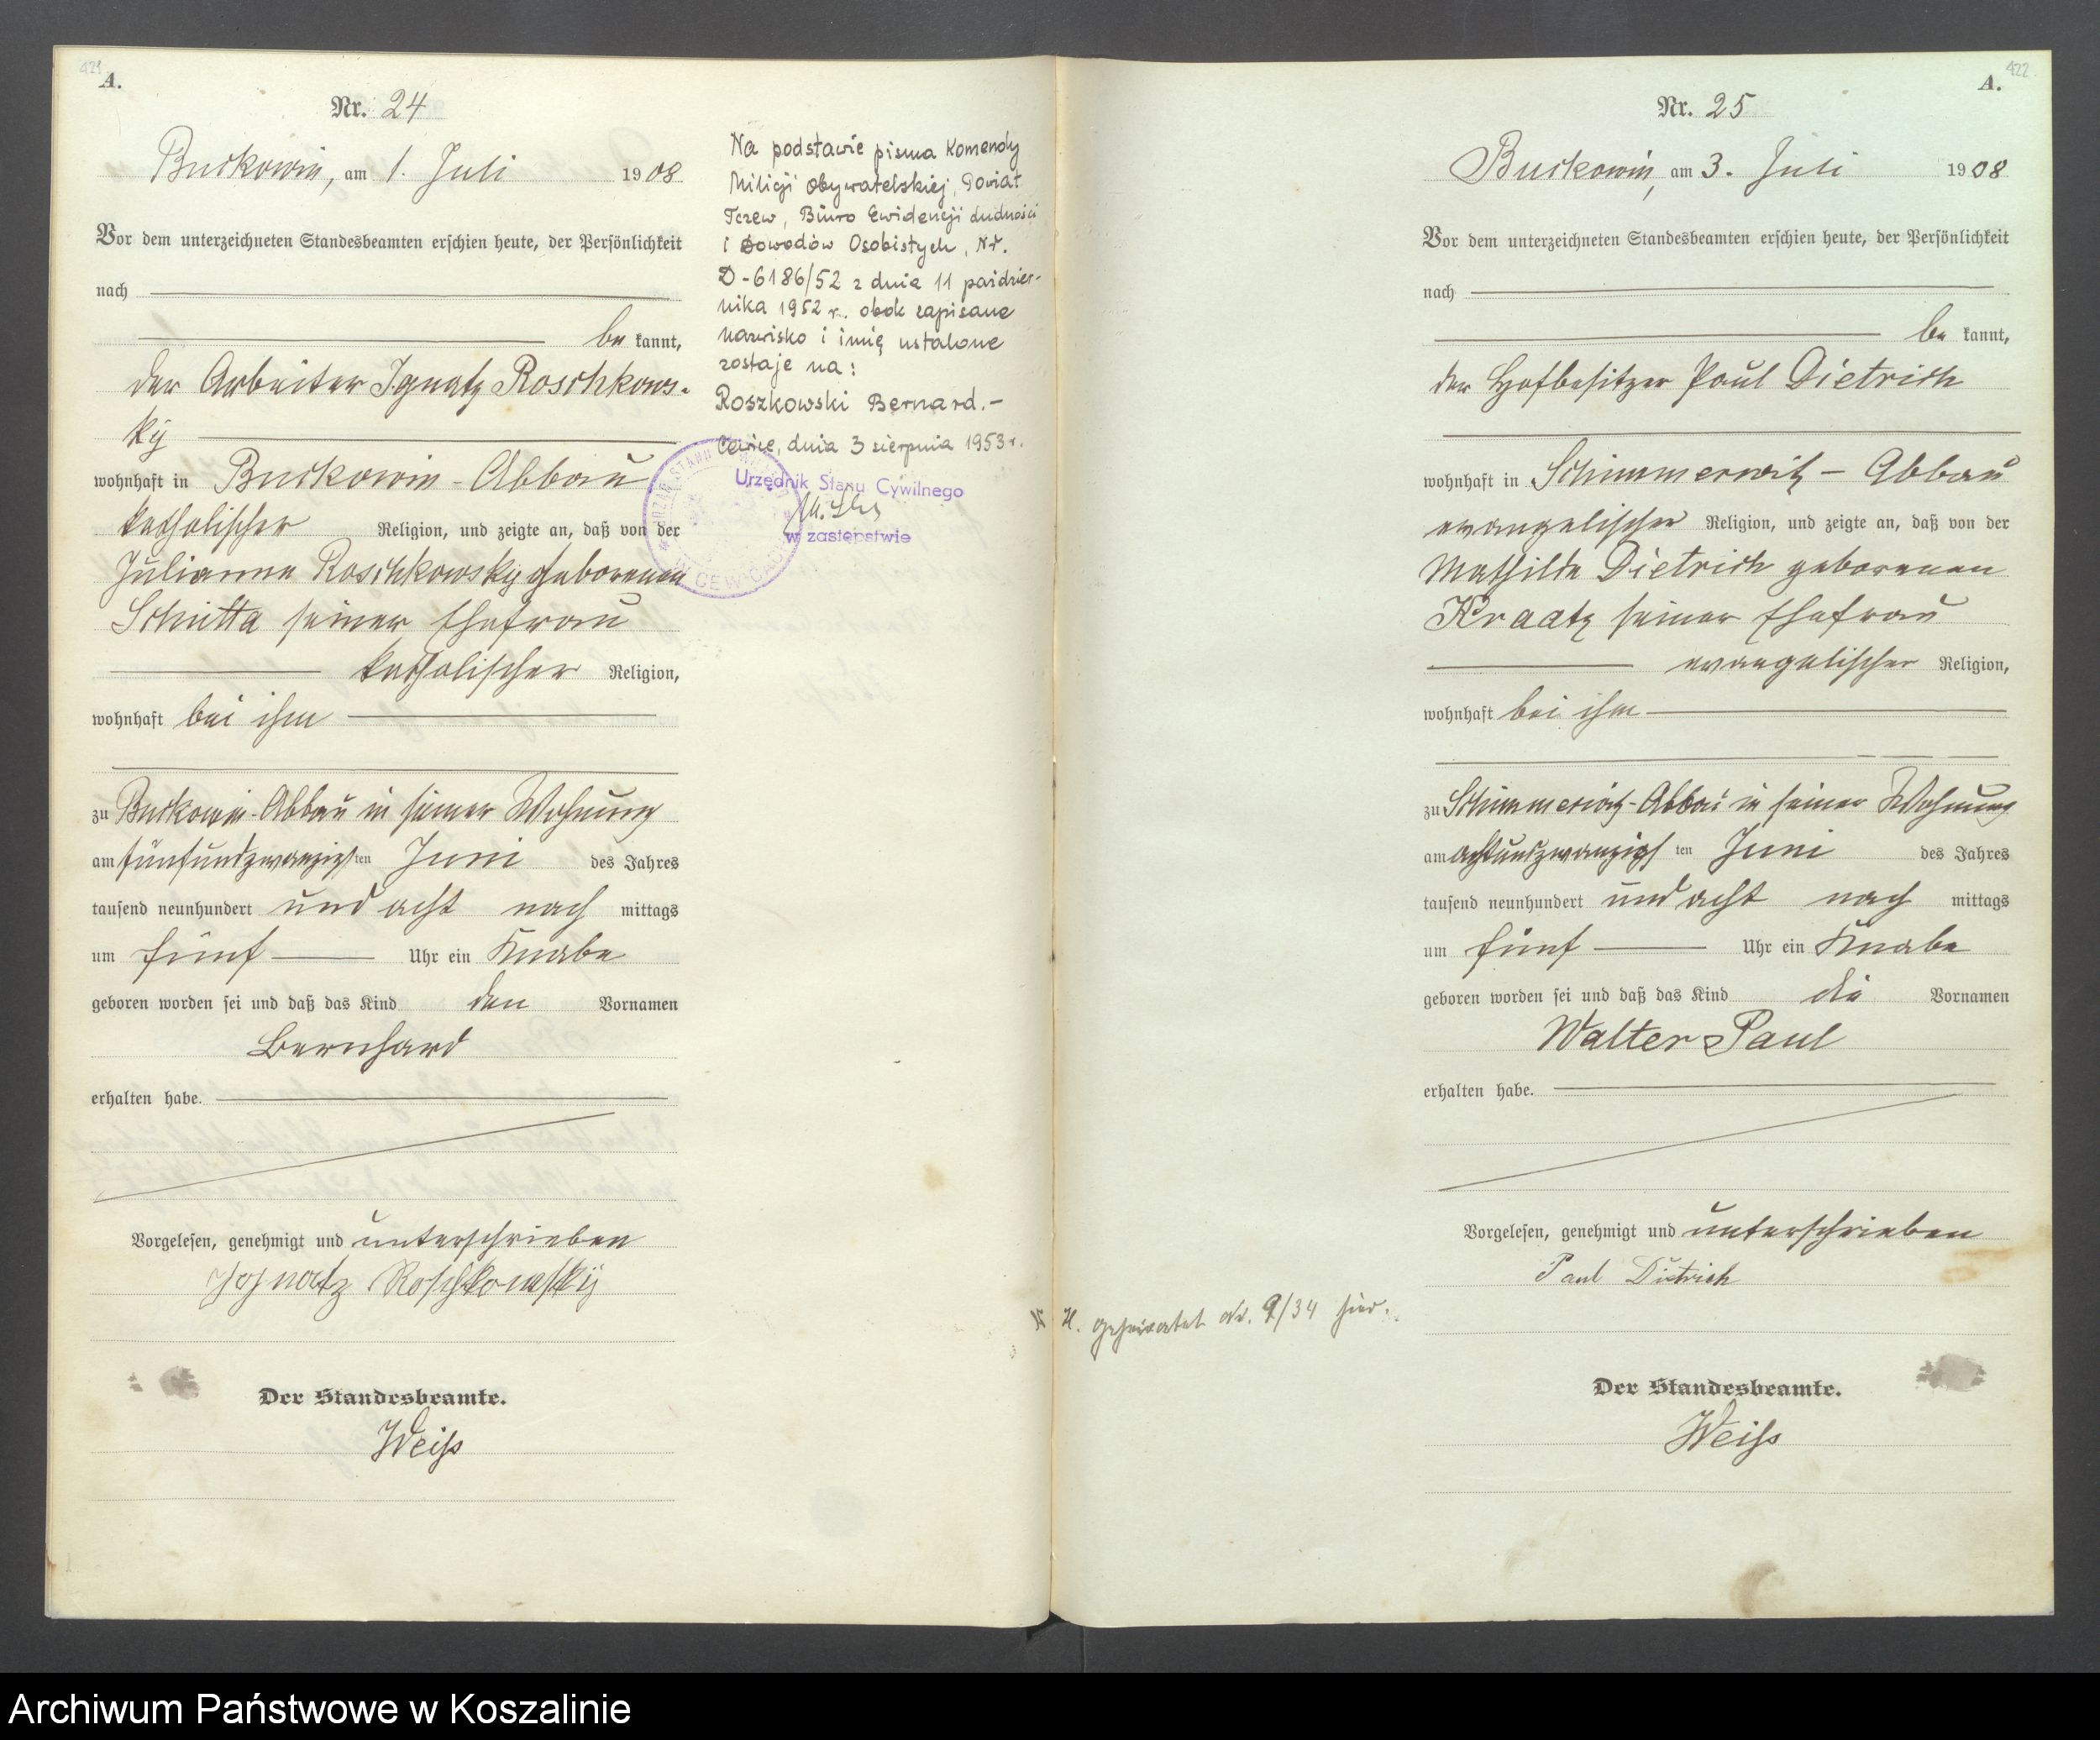 421
A.
Nr. 24
Buckowin, am 1. Juli 1908
Vor dem unterzeichneten Standesbeamten erschien heute, der Persönlichkeit
nach
be kannt,
der Arbeiter Ignatz Roschkows-
ky
wohnhaft in Buckowin-Abbau
katholischer Religion, und zeigte an, daß von der
Julianna Roschkowsky geborenen
Schütta seiner Ehefrau
katholischer Religion,
wohnhaft bei ihm
zu Buckowin-Abbau in seiner Wohnung
am fünfundzwanzigsten Juni des Jahres
tausend neunhundert und acht nach mittags
um fünf Uhr ein Knabe
geboren worden sei und daß das Kind den Vornamen
Bernhard
erhalten habe.
Vorgelesen, genehmigt und unterschrieben
Ignatz Roschkowsky
Der Standesbeamte.
Weiß
Na podstawie pisma Komendy
Milicji Obywatelskiej, Powiat
Tczew, Biuro Ewidencji Ludności
i Dowodów Osobistych, Nr.
D-6186/52 z dnia 11 paździer-
nika 1952 r. obok zapisane
nazwisko i imię ustalone
zostaje na:
Roszkowski Bernard.-
Cewice, dnia 3 sierpnia 1953 r.
Urzędnik Stanu Cywilnego
w zastępstwie
422
A.
Nr. 25
Buckowin, am 3. Juli 1908
Vor dem unterzeichneten Standesbeamten erschien heute, der Persönlichkeit
nach
be kannt,
der Hofbesitzer Paul Dietrich
wohnhaft in Schimmerwitz - Abbau
evangelischer Religion, und zeigte an, daß von der
Mathilde Dietrich geborenen
Kraatz seiner Ehefrau
evangelischer Religion,
wohnhaft bei ihm
zu Schimmerwitz-Abbau in seiner Wohnung
am achtundzwanzigsten Juni des Jahres
tausend neunhundert und acht nach mittags
um fünf Uhr ein Knabe
geboren worden sei und daß das Kind die Vornamen
Walter Paul
erhalten habe.
Vorgelesen, genehmigt und unterschrieben
Paul Dietrich
geheiratet Nr. 9/34 hier.
Der Standesbeamte.
Weiß
Archiwum Państwowe w Koszalinie